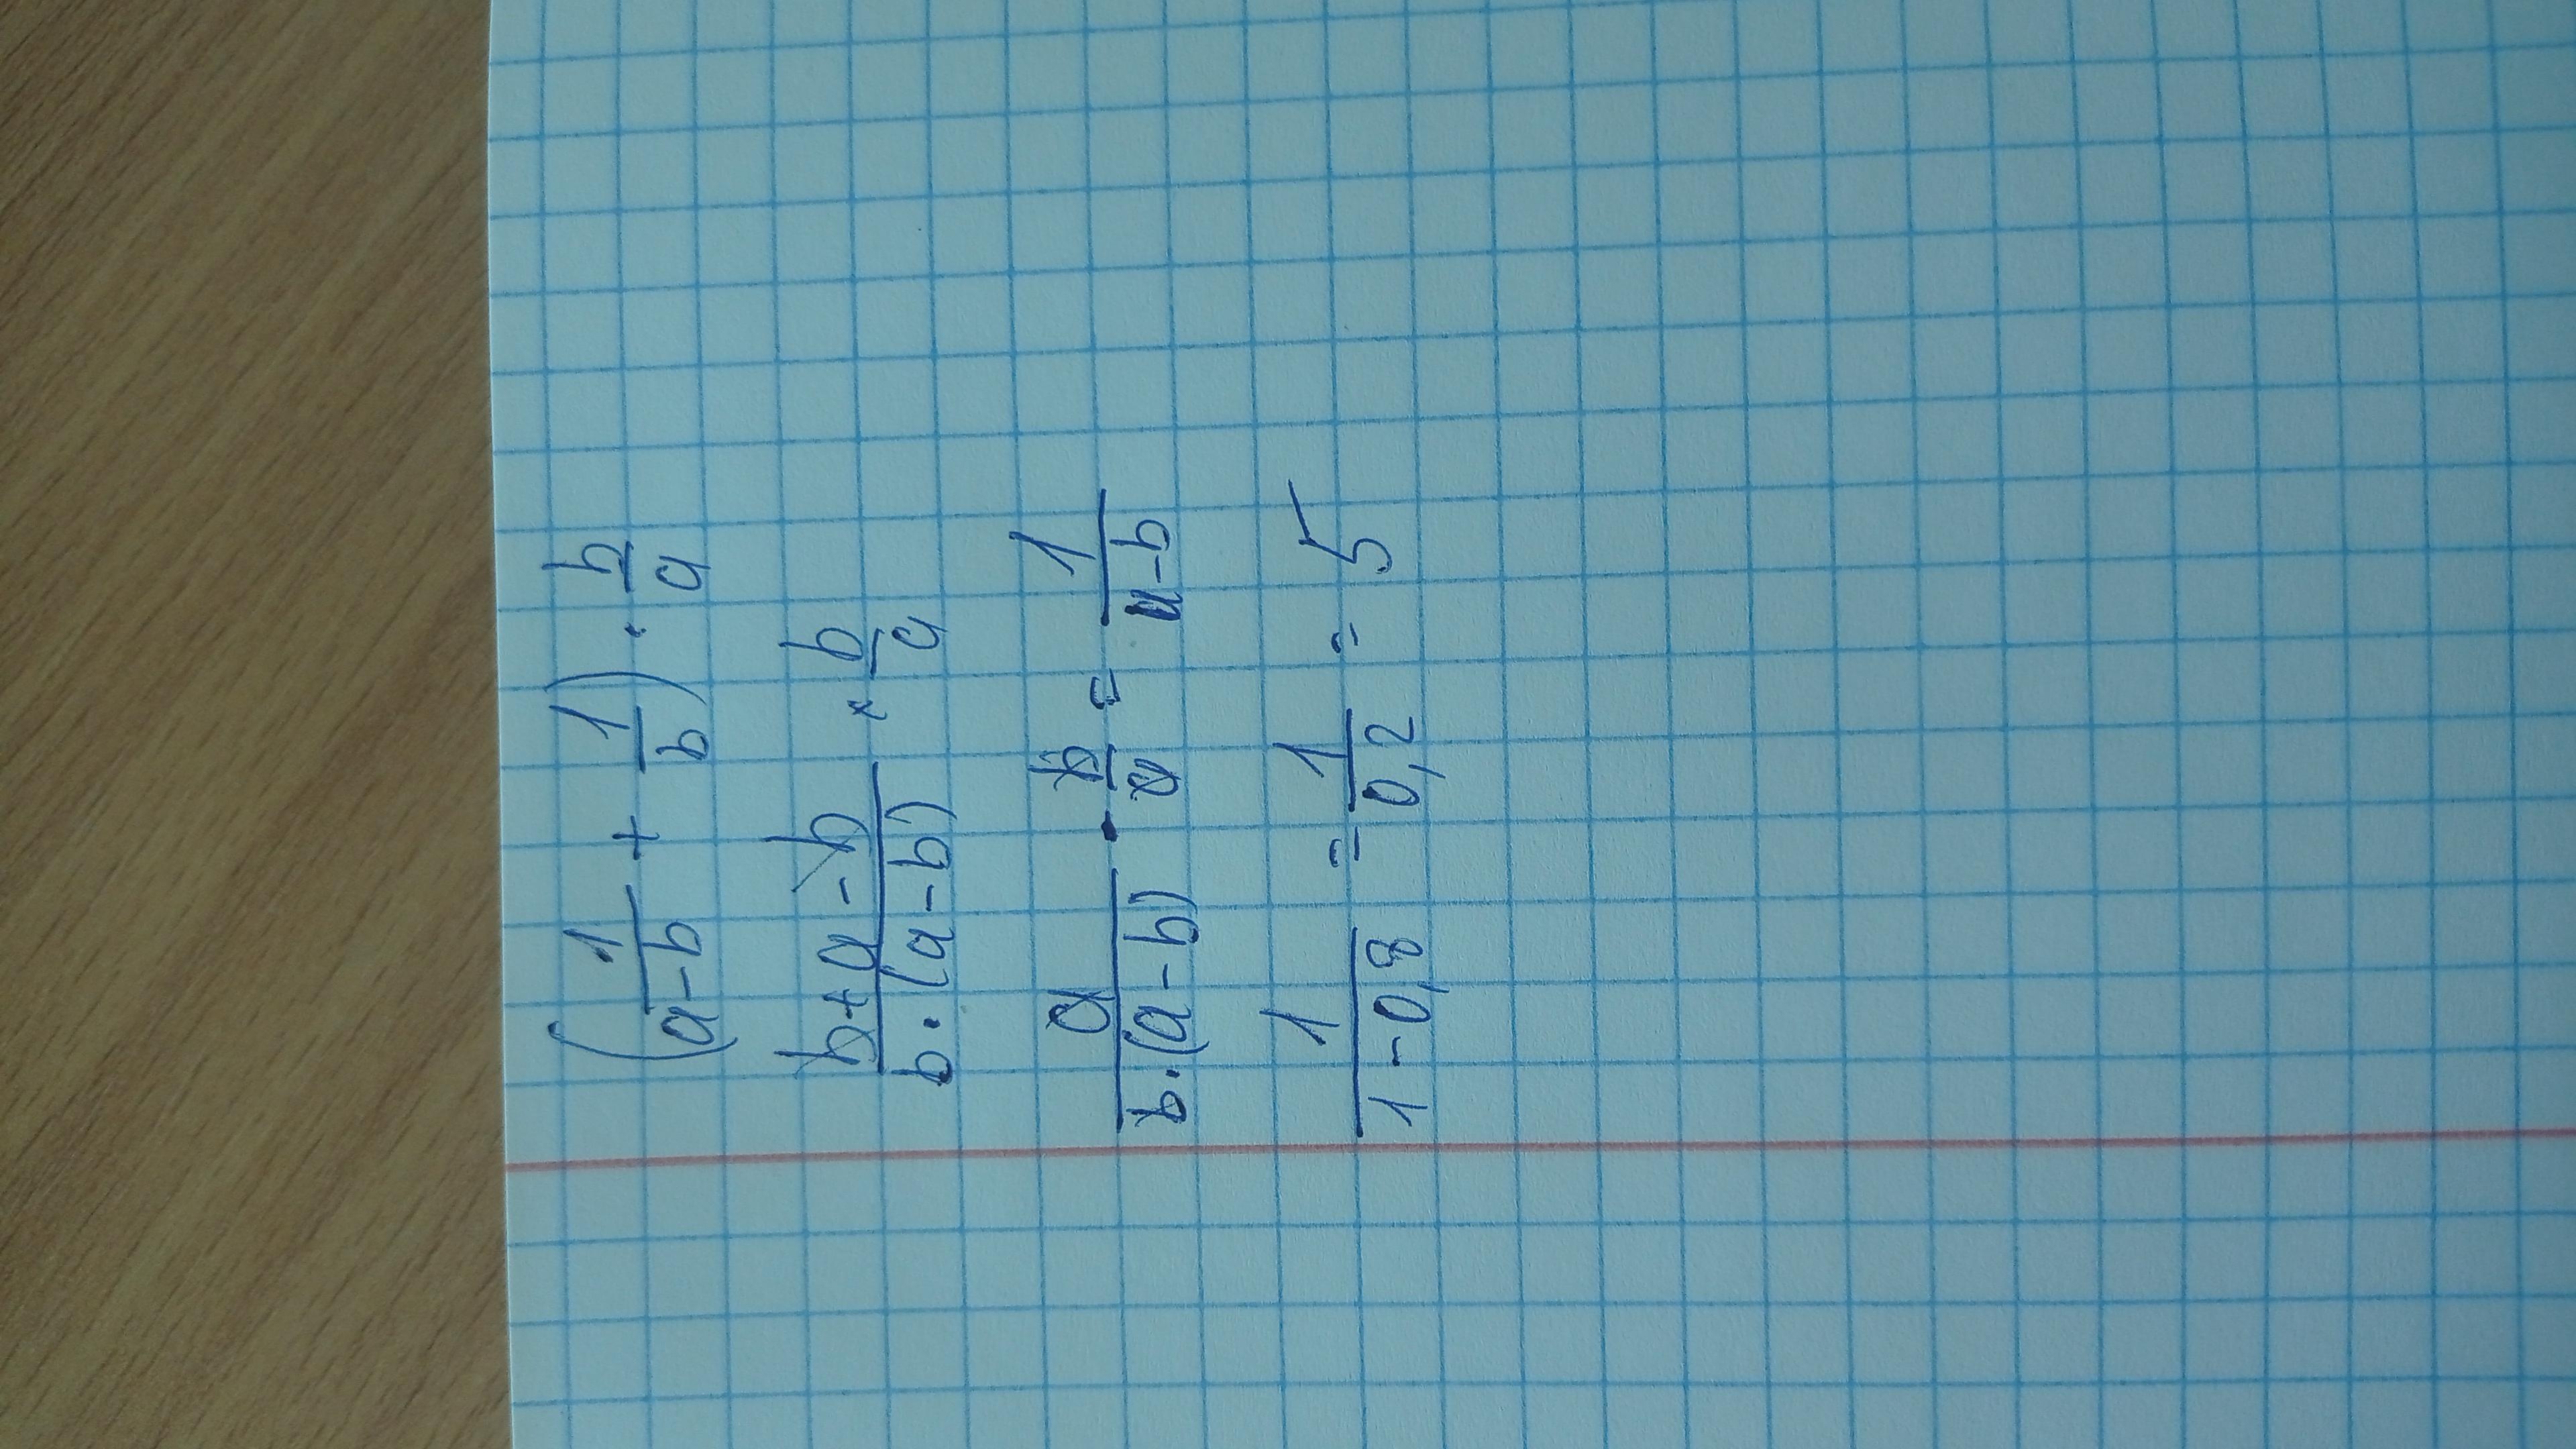 (1/(a-b) + 1/b) · b/a
(b+a-b)/(b·(a-b)) · b/a
a/(b·(a-b)) · b/a = 1/(a-b)
1/(1-0,8) = 1/0,2 = 5